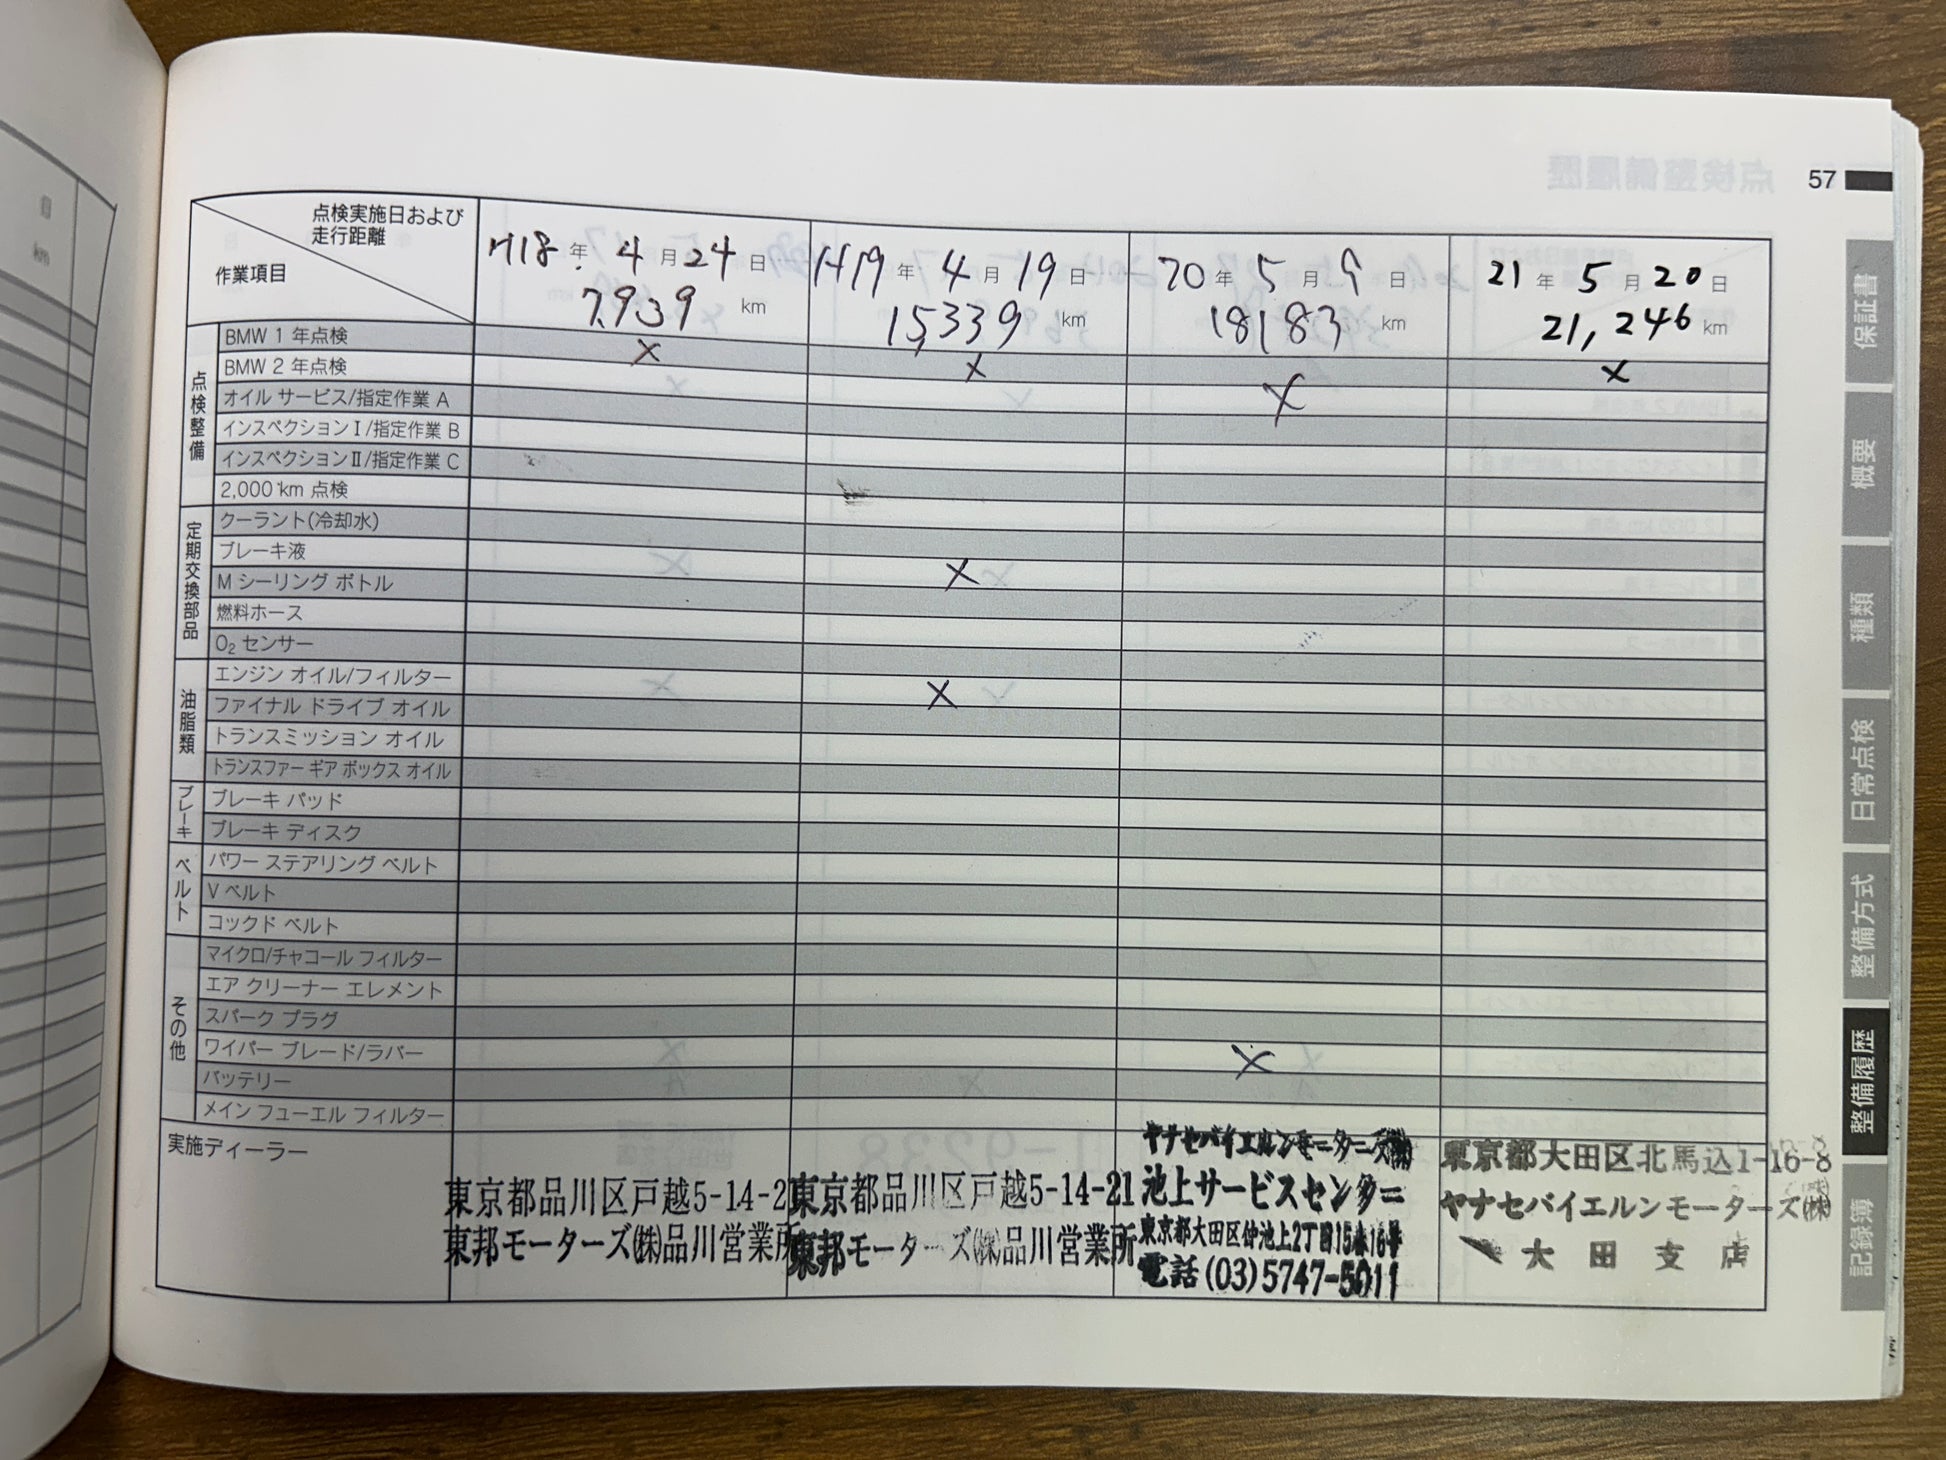 57
点検実施日および
走行距離
作業項目
H18年 4月24日
7,939 km
H19年 4月19日
15,339 km
20年 5月9日
18183 km
21年 5月20日
21,246 km
点検整備
BMW 1 年点検
×
BMW 2 年点検
× ×
オイル サービス/指定作業 A
×
インスペクションⅠ/指定作業 B
インスペクションⅡ/指定作業 C
2,000 km 点検
定期交換部品
クーラント(冷却水)
ブレーキ液
×
M シーリング ボトル
燃料ホース
O₂ センサー
油脂類
エンジン オイル/フィルター
×
ファイナル ドライブ オイル
トランスミッション オイル
トランスファー ギア ボックス オイル
ブレーキ
ブレーキ パッド
ブレーキ ディスク
ベルト
パワー ステアリング ベルト
V ベルト
コックド ベルト
その他
マイクロ/チャコール フィルター
エア クリーナー エレメント
スパーク プラグ
ワイパー ブレード/ラバー
×
バッテリー
メイン フューエル フィルター
実施ディーラー
東京都品川区戸越5-14-21
東邦モーターズ㈱品川営業所
東京都品川区戸越5-14-21
東邦モーターズ㈱品川営業所
ヤナセバイエルンモーターズ㈱
池上サービスセンター
東京都大田区仲池上2丁目15番16号
電話(03)5747-5011
東京都大田区北馬込1-16-8
ヤナセバイエルンモーターズ㈱
大田支店
保証書
概要
種類
日常点検
整備方式
整備履歴
記録簿